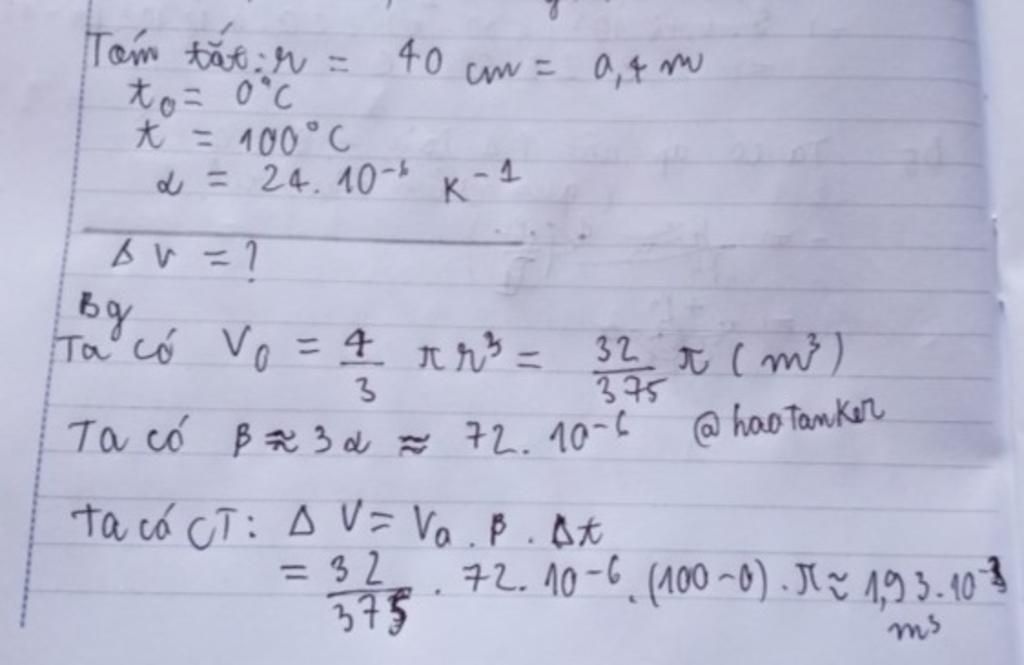 Tóm tắt: r = 40 cm = 0,4 m
t₀ = 0°C
t = 100°C
α = 24.10⁻⁶ K⁻¹
Δ V = ?
Bg
Ta có V₀ = 4/3 π r³ = 32/375 π (m³)
Ta có β ≈ 3α ≈ 72.10⁻⁶ @haoTanker
Ta có CT: Δ V = V₀ . β . Δt
= 32/375 . 72.10⁻⁶ . (100-0) . π ≈ 1,93.10⁻³
m³